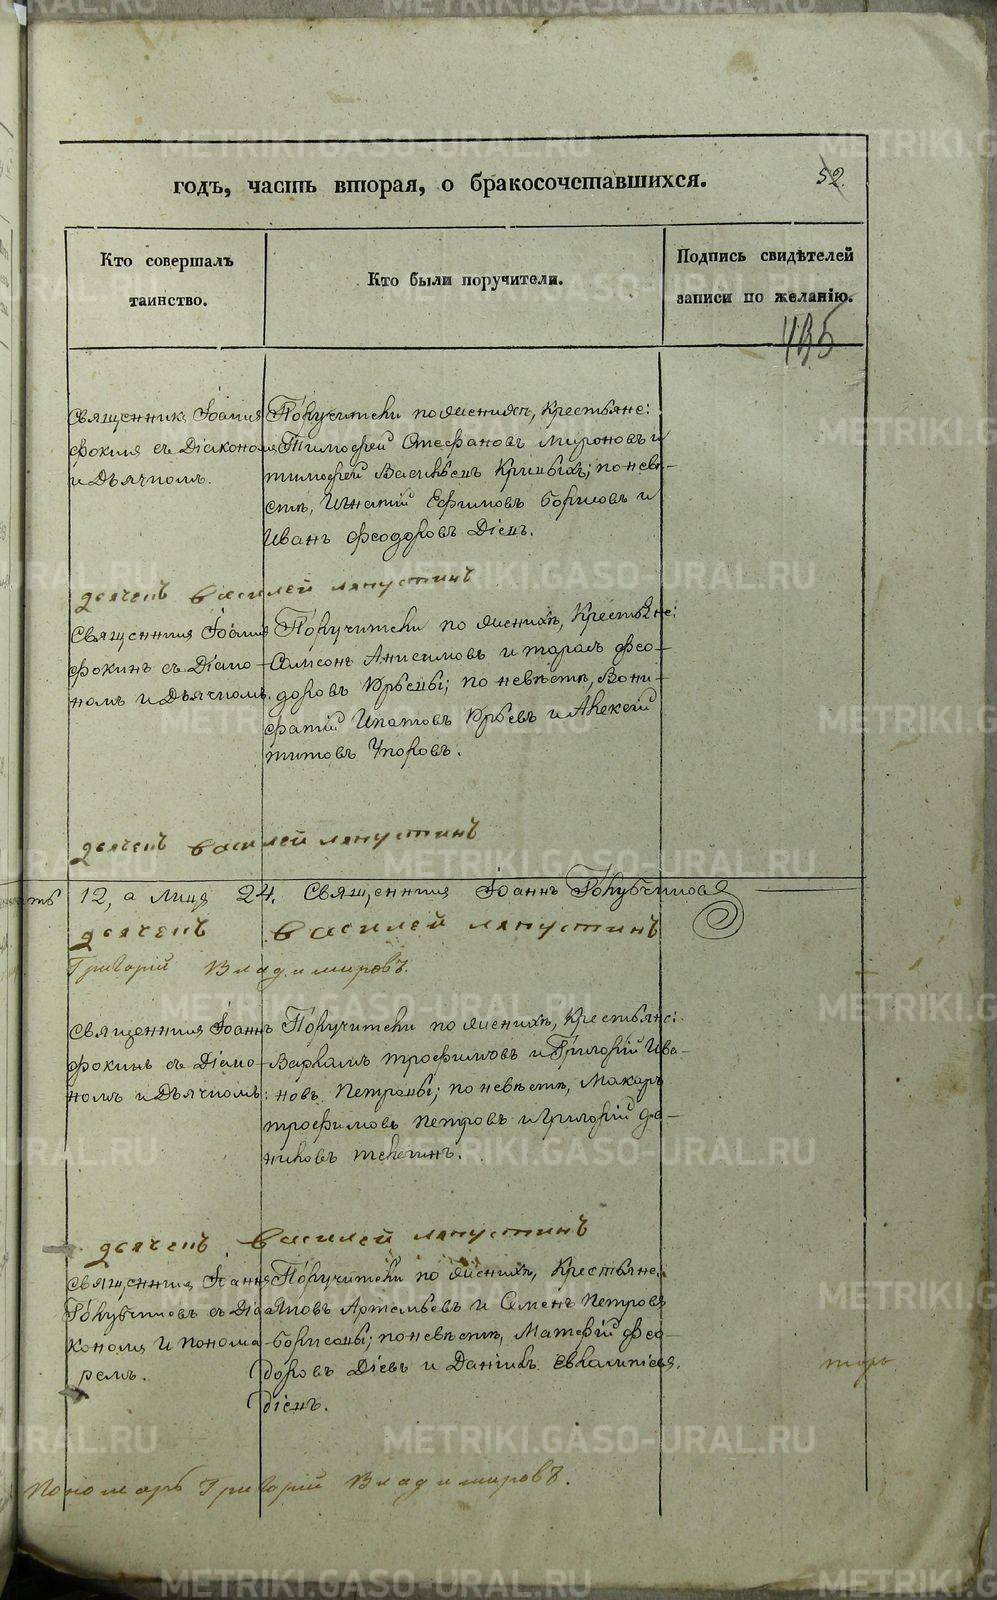 годъ, часть вторая, о бракосочетавшихся.
52.
Кто совершалъ таинство.
Кто были поручители.
Подпись свидѣтелей записи по желанію.
435
Священникъ Іоаннъ
Фокинъ съ Діакономъ
и Дьячкомъ.
Поручители по женихѣ, Крестьяне:
Тимофей Стефановъ Мироновъ и
Тимофей Васильевъ; по невѣ-
стѣ, Игнатій Ефимовъ Борисовъ и
Иванъ Феодоровъ Діевъ.
дьячекъ Василей Ляпустинъ
Священникъ Іоаннъ
Фокинъ съ Діако-
номъ и Дьячкомъ.
Поручители по женихѣ, Крестьяне:
Самсонъ Анисимовъ и Тарасъ Фео-
доровъ Юрьевы; по невѣстѣ, Вони-
фатій Ипатовъ Юрьевъ и Алексѣй
Титовъ Упоровъ.
дьячекъ Василей Ляпустинъ
12, а лица 24. Священникъ Іоаннъ Голубчиковъ
дьячекъ Василей Ляпустинъ
Григорій Владимировъ.
Священникъ Іоаннъ
Фокинъ съ Діако-
номъ и Дьячкомъ:
Поручители по женихѣ, Крестьяне:
Варламъ Трофимовъ и Григорій Ива-
новъ Петровы; по невѣстѣ, Макаръ
Трофимовъ Петровъ и Григорій Да-
ниловъ Телегинъ.
дьячекъ Василей Ляпустинъ
Священникъ Іоаннъ
Голубчиковъ съ Діа-
кономъ и понома-
ремъ.
Поручители по женихѣ, Крестьяне:
Яковъ Артемьевъ и Семенъ Петровъ
Борисовы; по невѣстѣ, Матфій Фео-
доровъ Діевъ и Даніилъ Евкампіевъ
Діевъ.
Пономарь Григорій Владимировъ.
METRIKI.GASO-URAL.RU